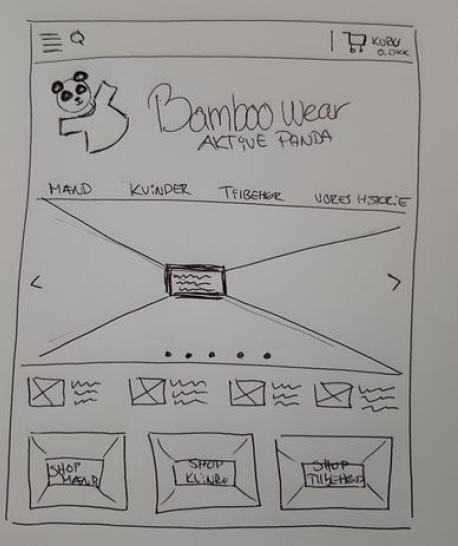 KURV
0.0KK
Bamboo Wear
AKTIVE PANDA
MAND KVINDER TILBEHØR VORES HISTORIE
SHOP
MAND
SHOP
KVINDE
SHOP
TILBEHØR